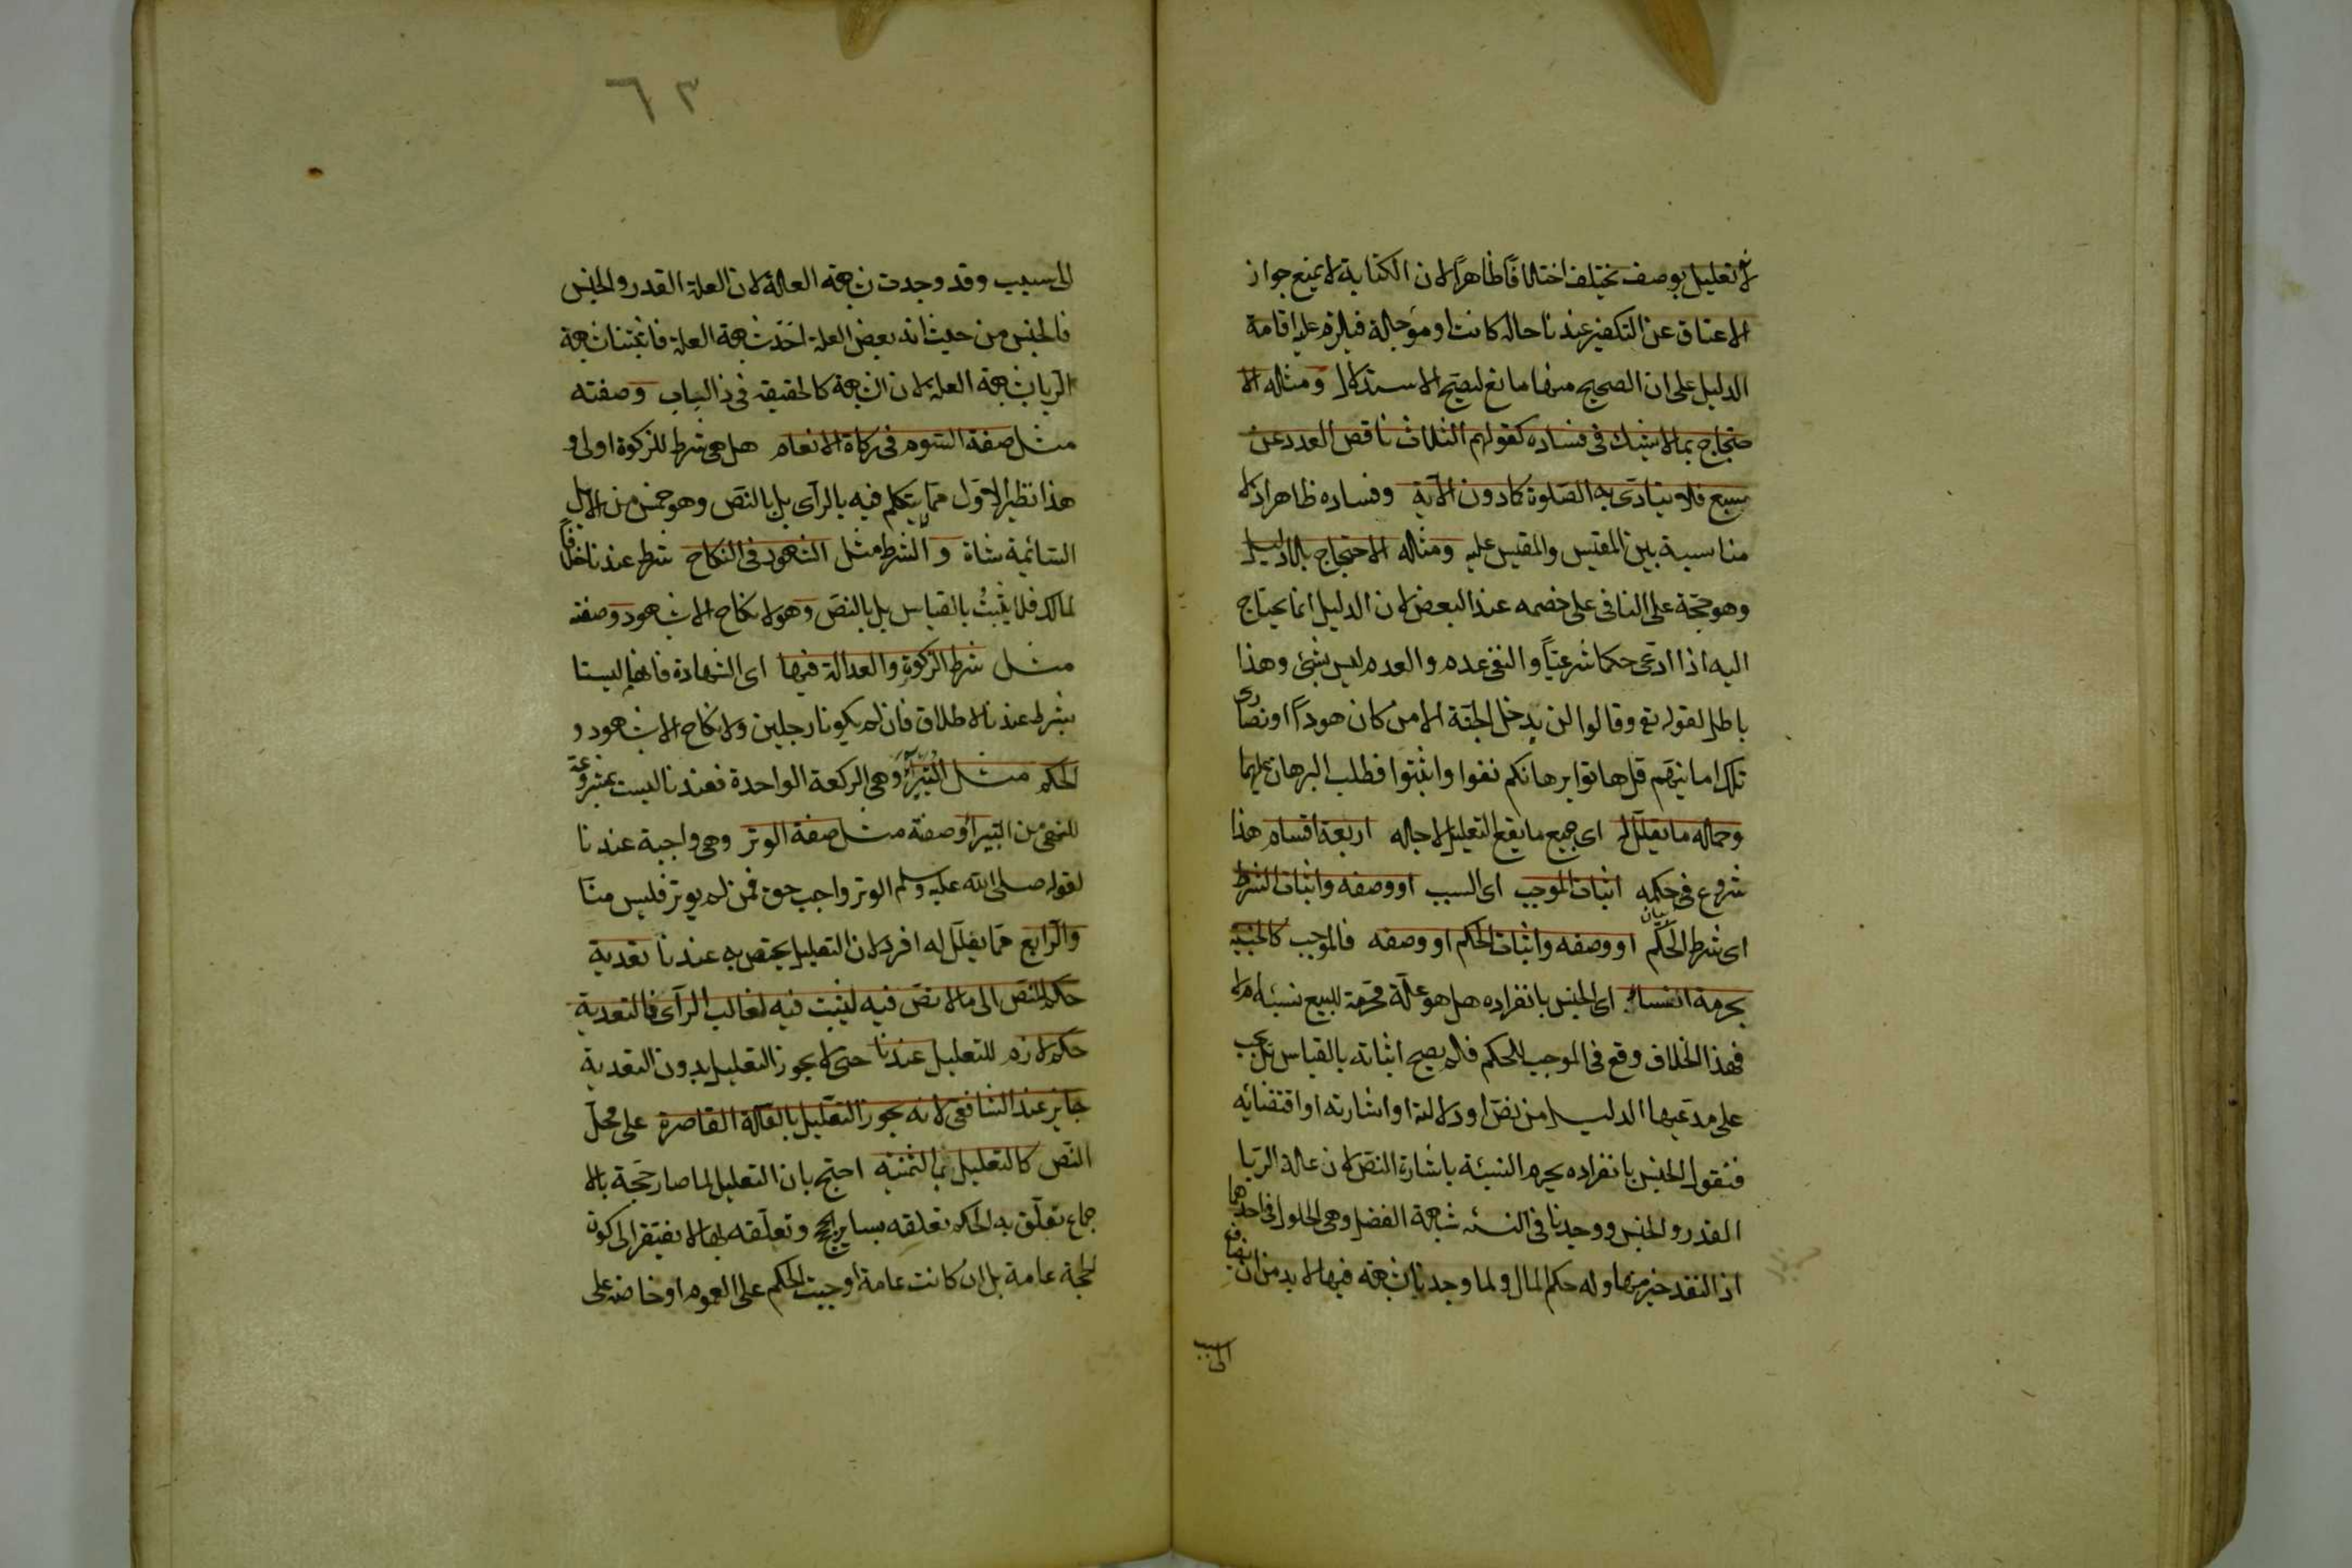 لانه تعليل بوصف يختلف اختلافا ظاهرا لان الكتابة لا يمنع جواز
الاعتاق عن التكفير عندنا حالة كانت او مؤجلة فيلزم عليه اقامة
الدليل على ان الصحيح منها مانع ليصح الاستدلال ومثله الا
حتجاج بما لا يشك في فساده كقولهم الثلاث ناقص العدد عن
سبع فلا يتادى به الصلوة كما دون الآية وفساده ظاهر اذ لا
مناسبة بين المقيس والمقيس عليه ومثاله الاحتجاج بلا دليل
وهو حجة على النافي على خصمه عند البعض لان الدليل انما يحتاج
اليه اذا ادعى حكما شرعيا والنفي عدم والعدم ليس بشئ وهذا
باطل لقوله تع وقالوا لن يدخل الجنة الا من كان هودا او نصارى
تلك امانيهم قل هاتوا برهانكم نفوا واثبتوا فطلب البرهان عليهما
وجملة ما يعلل له اى جميع ما يقع التعليل لاجله اربعة اقسام هذا
شروع في حكمه اثبات الموجب اى السبب او وصفه واثبات الشرط
اى شرط الحكم او وصفه واثبات الحكم او وصفه فالموجب كالجنسية
بحرمة النساء اى الجنس بانفراده هل هو علة محرمة للبيع نسيئة ام لا
فهذا الخلاف وقع في الموجب للحكم فلم يصح اثباته بالقياس بل يجب
على مدعيها الدليل من نص او دلالة او اشارته او اقتضائه
فنقول الجنس بانفراده يحرم النسيئة باشارة النص لان علة الربا
القدر والجنس ووجدنا في النسئه شبهة الفضل وهى الحلول في احدهما
اذ النقد خير منها وله حكم المال ولما وجدنا شبهة فيها لا بد من ان يضاف
الى سبب
٦٣
الى سبب وقد وجدت شبهة العلة لان العلة القدر والجنس
فالجنس من حيث انه بعض العلة اخذت شبهة العلة فاثبتنا شبهة
الربا بشبهة العلة لان الشبهة كالحقيقة في ذا الباب وصفته
مثل صفة السوم في زكاة الانعام هل هى شرط للزكوة اولا و
هذا نظير الاول مما لا يتكلم فيه بالرأى بل بالنص وهو خمس من الابل
السائمة شاة والشرط مثل الشهود في النكاح شرط عندنا خلافا
لمالك فلا يثبت بالقياس بل بالنص وهو لا نكاح الا بشهود وصفته
مثل شرط الزكوة والعدالة فيها اى الشهادة فانهما ليستا
بشرط عندنا لاطلاق فان لم يكونا رجلين ولا نكاح الا بشهود و
الحكم مثل البتيراء وهى الركعة الواحدة فعندنا ليست بمشروعة
للنهى من البتيراء وصفته مثل صفة الوتر وهى واجبة عندنا
لقوله صلى الله عليه وسلم الوتر واجب حق فمن لم يوتر فليس منا
والرابع مما يعلل له افرد لان التعليل يختص به عندنا تعدية
حكم النص الى ما لا نص فيه ليثبت فيه لغالب الرأى فالتعدية
حكم لازم للتعليل عندنا حتى لا يجوز التعليل بدون التعدية
جايز عند الشافعى لانه يجوز التعليل بالعلة القاصرة على محل
النص كالتعليل بالثمنيه احتج بان التعليل لما صار حجة بالا
جماع تعلق به الحكم تعلقه بساير الحجج وتعلقه بها لا يفتقر الى كون
الحجة عامة بل ان كانت عامة اوجبت الحكم على العموم او خاصة على